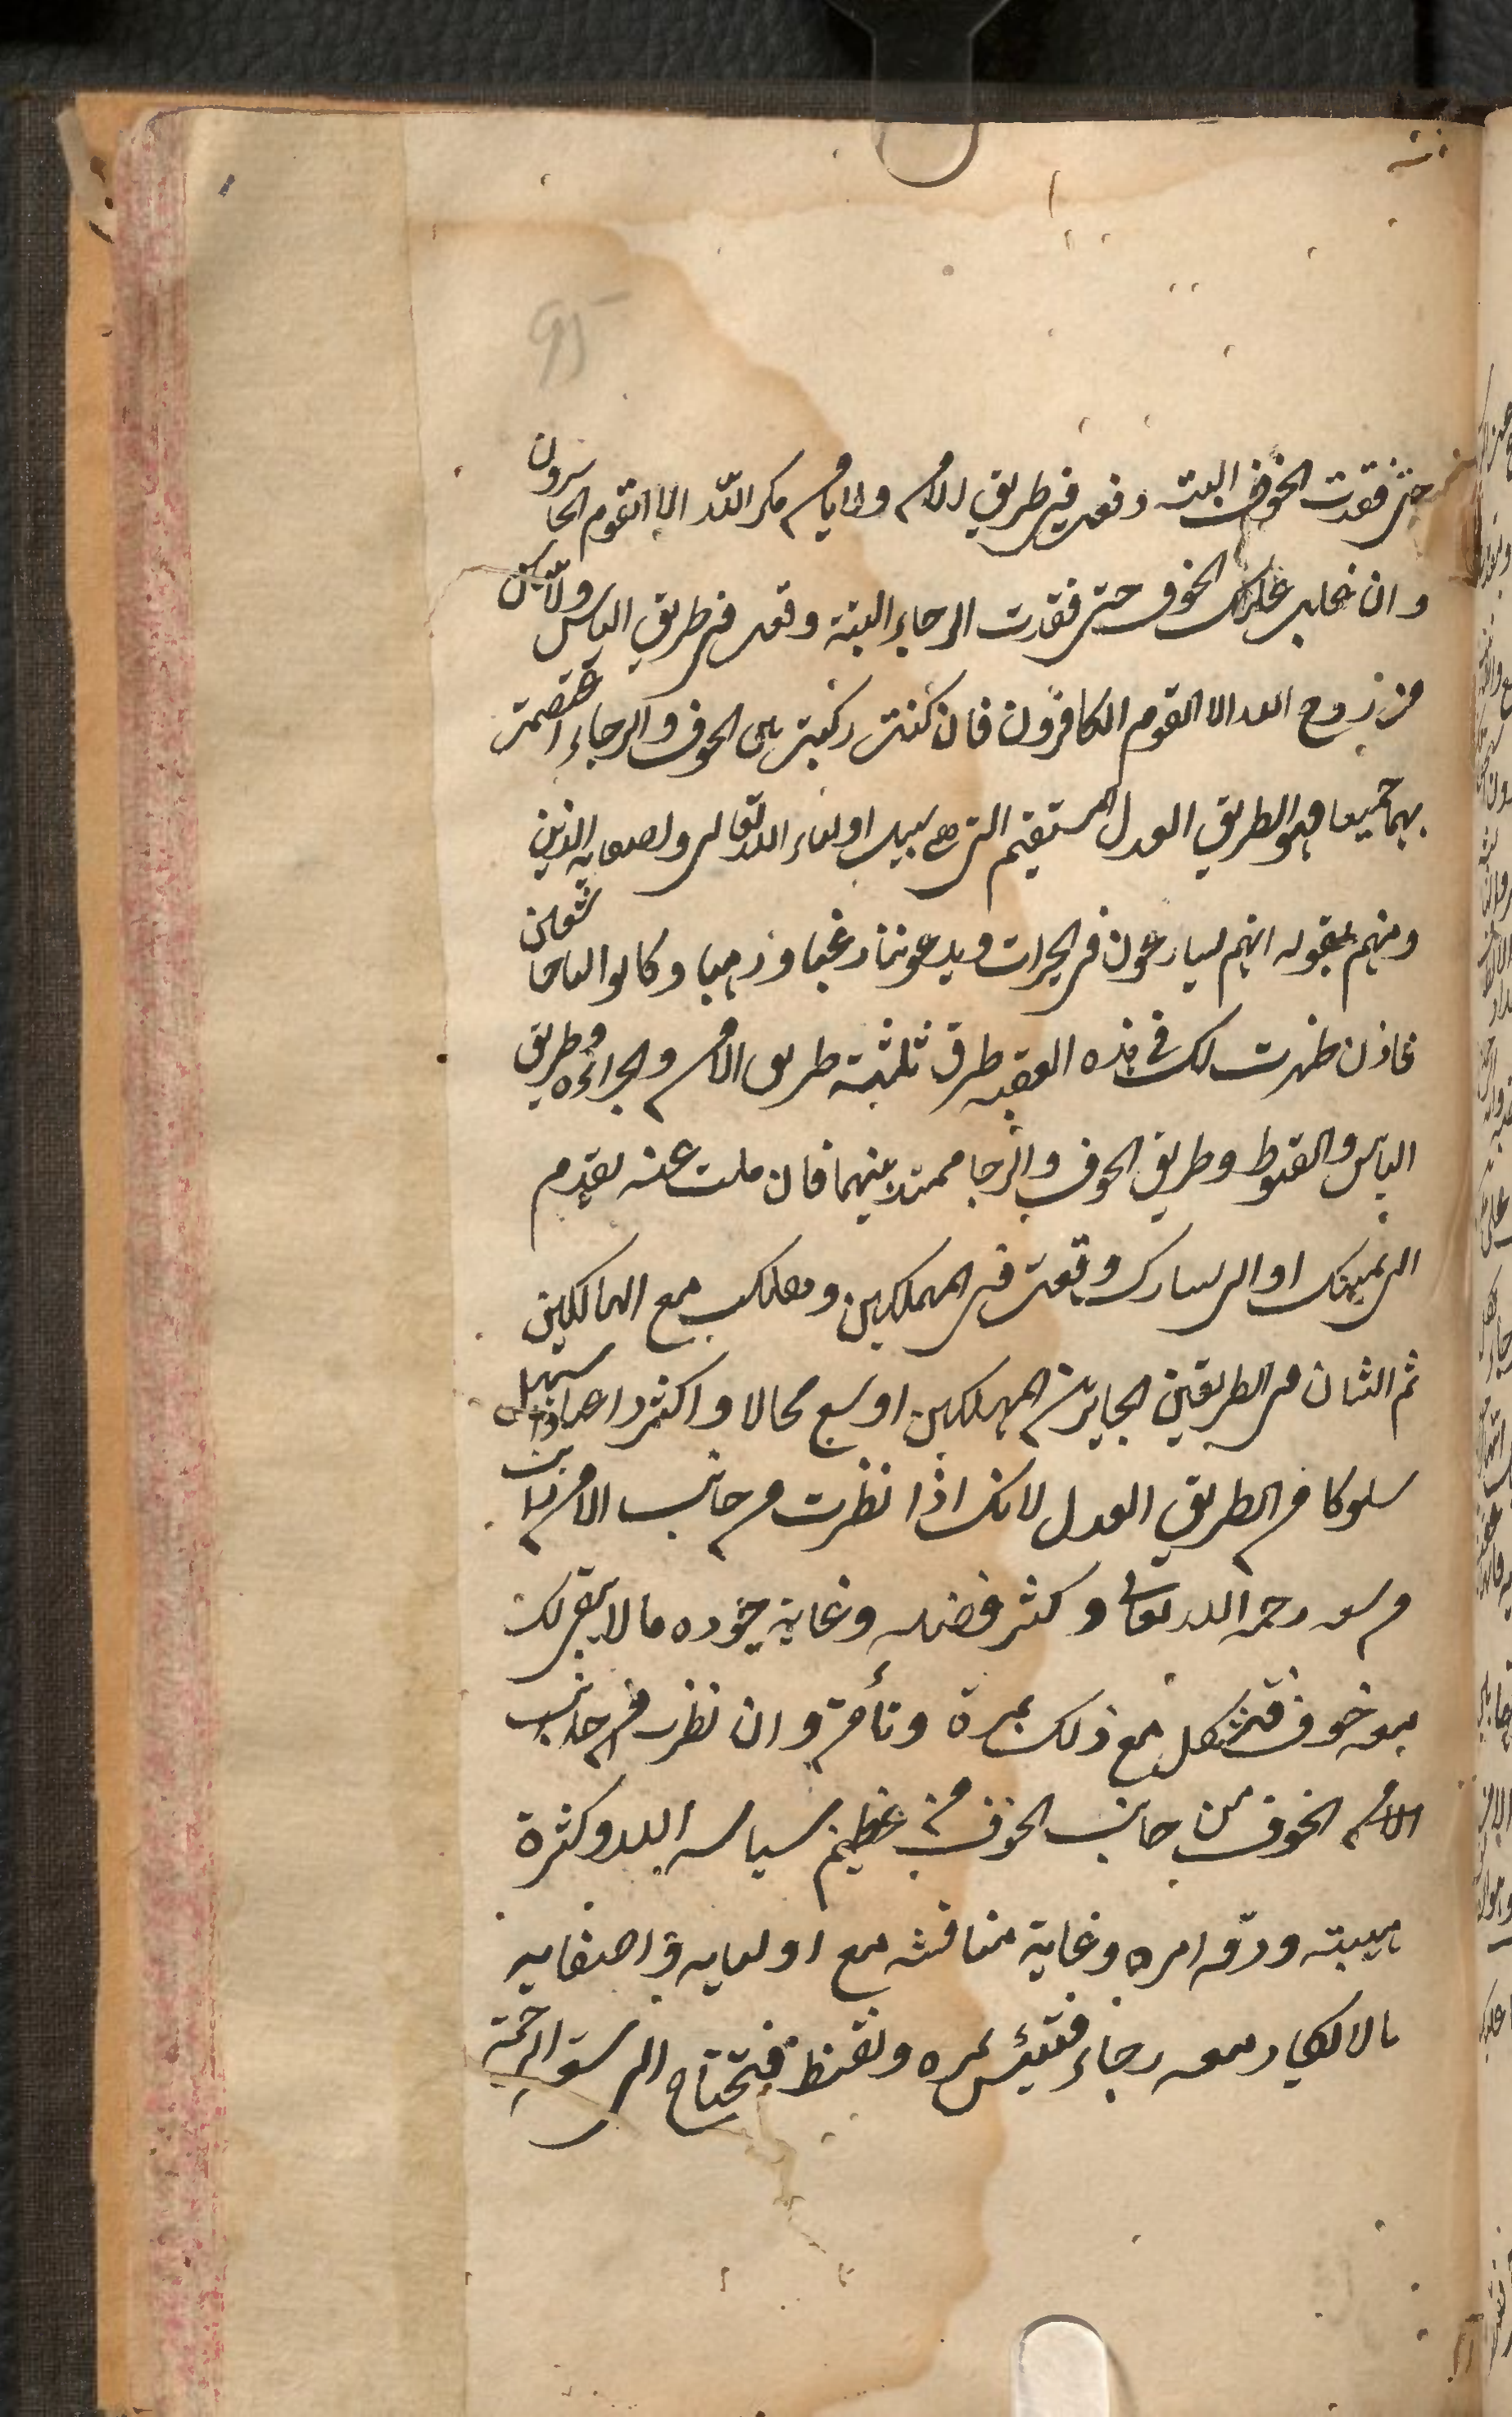 95
حتى فقدت الخوف البتة وقعت فى طريق الامن ولا يامن مكر اللّه الا القوم الخاسرون
وان غلب عليك الخوف حتى فقدت الرجاء البتة وقعت فى طريق الياس ولا ييئس
من روح الله الا القوم الكافرون فان كنت ركبت بين الخوف والرجاء اعتصمت
بهما جميعا فهو الطريق العدل المستقيم التى هى سبيل اولياء الله تعالى واصفيايه الذين
وصفهم بقوله انهم يسارعون فى الخيرات ويدعوننا رغبا ورهبا وكانوا لنا خاشعين
فاذن ظهرت لك فى هذه العقبه طرق ثلثة طريق الامن والجراءة وطريق
الياس والقنوط وطريق الخوف والرجا ممتد بينهما فان ملت عنه بقدم
الى يمينك او الى يسارك وقعت فى المهلكين وهلكت مع الهالكين
ثم الشان من الطريقين الجايرين المهلكين اوسع مجالا واكثر داعيا واسهل
سلوكا من الطريق العدل لانك اذا نظرت من جانب الامن رايت
من سعه رحمة الله تعالى وكثر فضله وغاية جوده ما لا يبقى لك
معه خوف فتتكل مع ذلك بمرة وتأمن وان نظرت من جانب
الامن الخوف من جانب الخوف من عظيم سياسه الله وكثرة
هيبته ودقه امره وغاية مناقشه مع اوليايه واصفايه
ما لا يكاد معه رجاء فتيئس بمره وتقنط فتحتاج الى سعة الرحمة